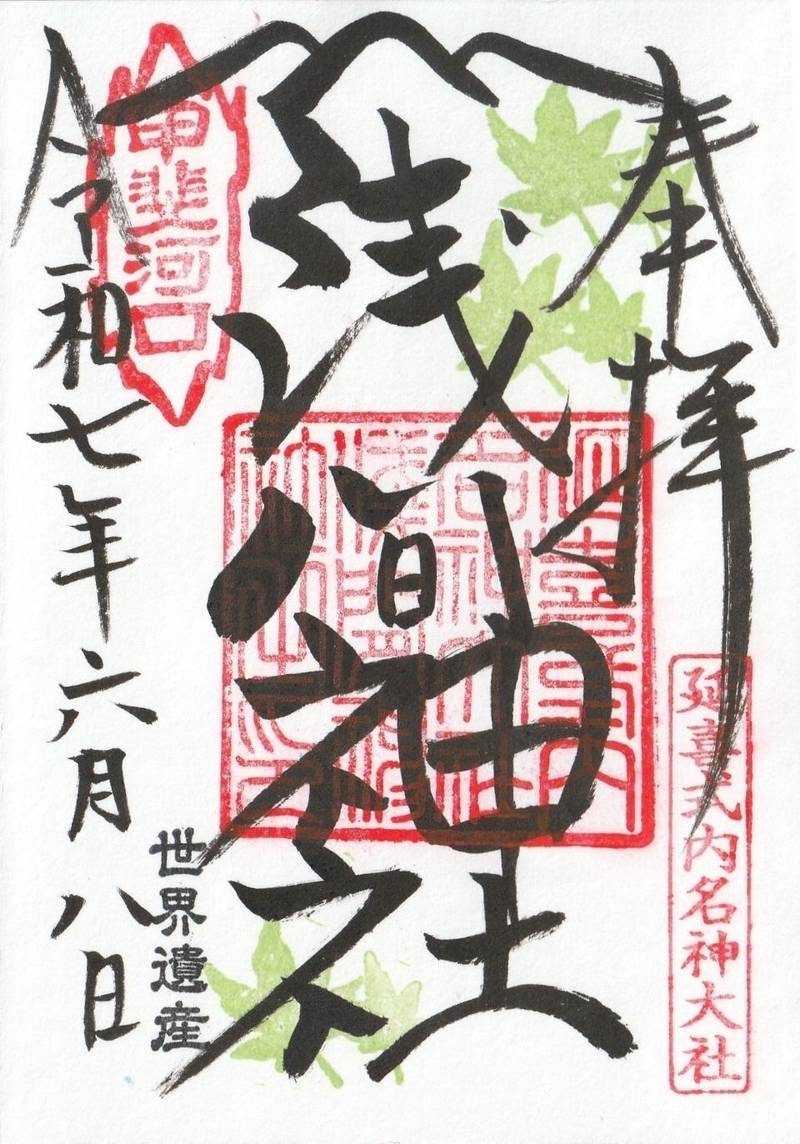 奉拝
延喜式内名神大社
浅間神社
甲斐河口
令和七年六月八日
世界遺産